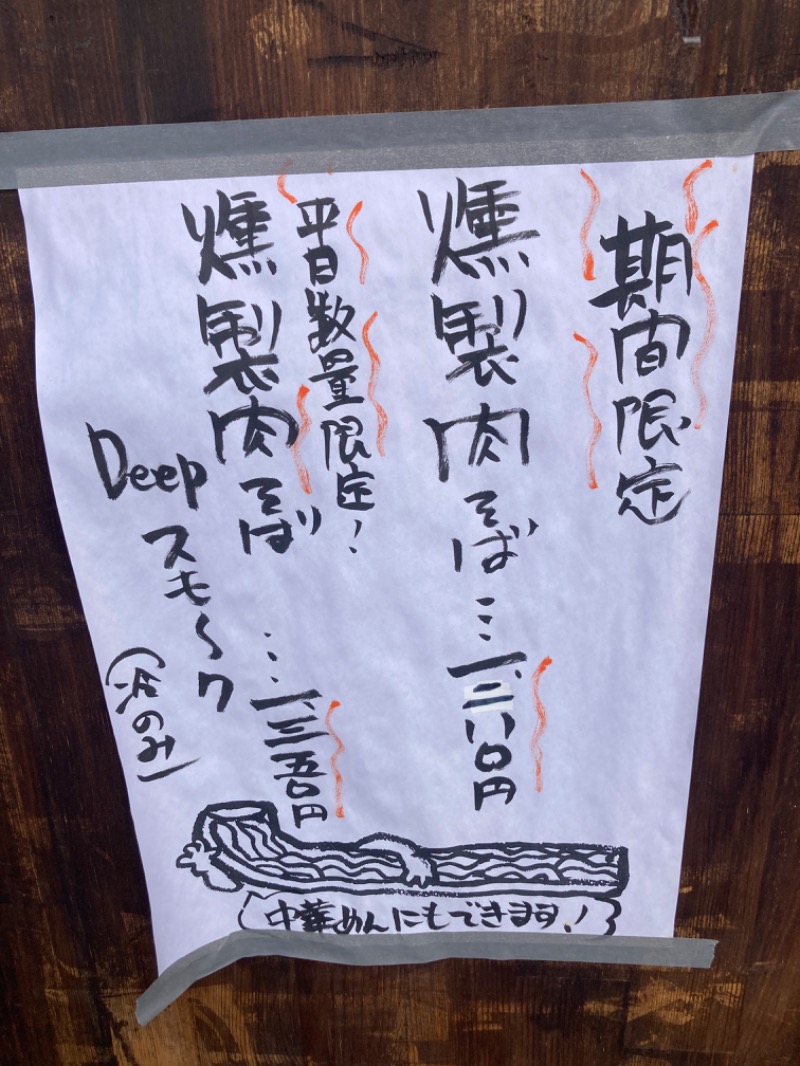 期間限定
燻製肉そば…一、二八〇円
平日数量限定!
燻製肉そば…一、三五〇円
Deep
スモーク
(冷のみ)
中華めんにもできます!